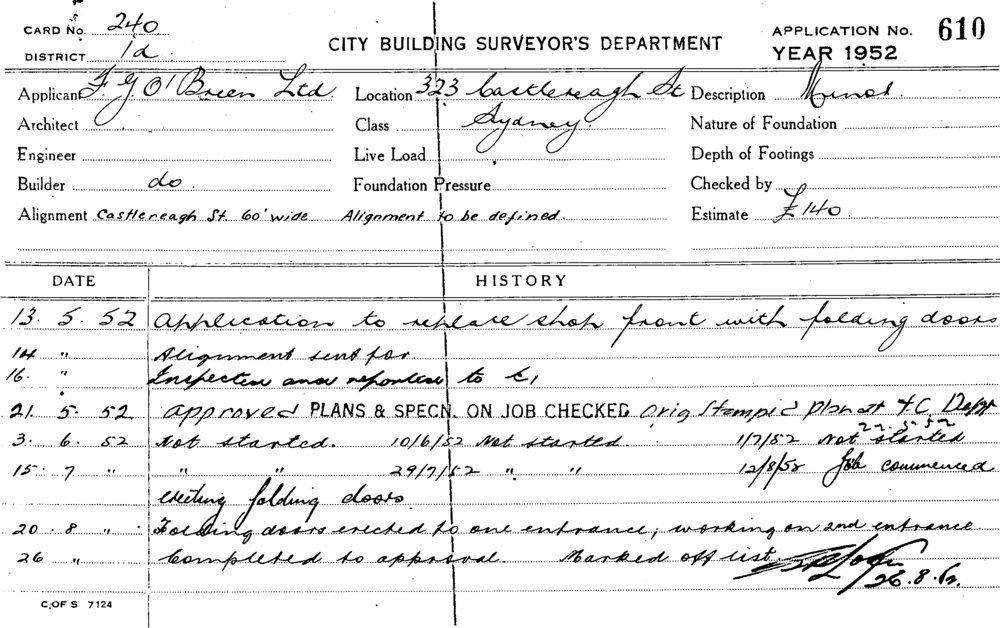 CARD No. 240
DISTRICT 1a
CITY BUILDING SURVEYOR'S DEPARTMENT
APPLICATION No. 610
YEAR 1952
Applicant F G O'Brien Ltd. Location 323 Castlereagh St Description Minor.
Architect Class Sydney. Nature of Foundation
Engineer Live Load Depth of Footings
Builder do. Foundation Pressure Checked by
Alignment Castlereagh St. 60' wide Alignment to be defined. Estimate £140.
DATE HISTORY
13. 5. 52 Application to replace shop front with folding doors
14 " Alignment sent for
16. " Inspection and reported to
21. 5. 52 Approved PLANS & SPECN. ON JOB CHECKED Orig Stampid plan at
22.5.52
3. 6. 52 Not started. 10/6/52 Not started 1/7/52 Not started
15. 7 " " " 29/7/52 " " 12/8/58 Job commenced
erecting folding doors
20. 8 " Folding doors erected to one entrance; working on 2nd entrance
26 " Completed to approval. Marked off list.
26.8.52.
C. OF S 7124